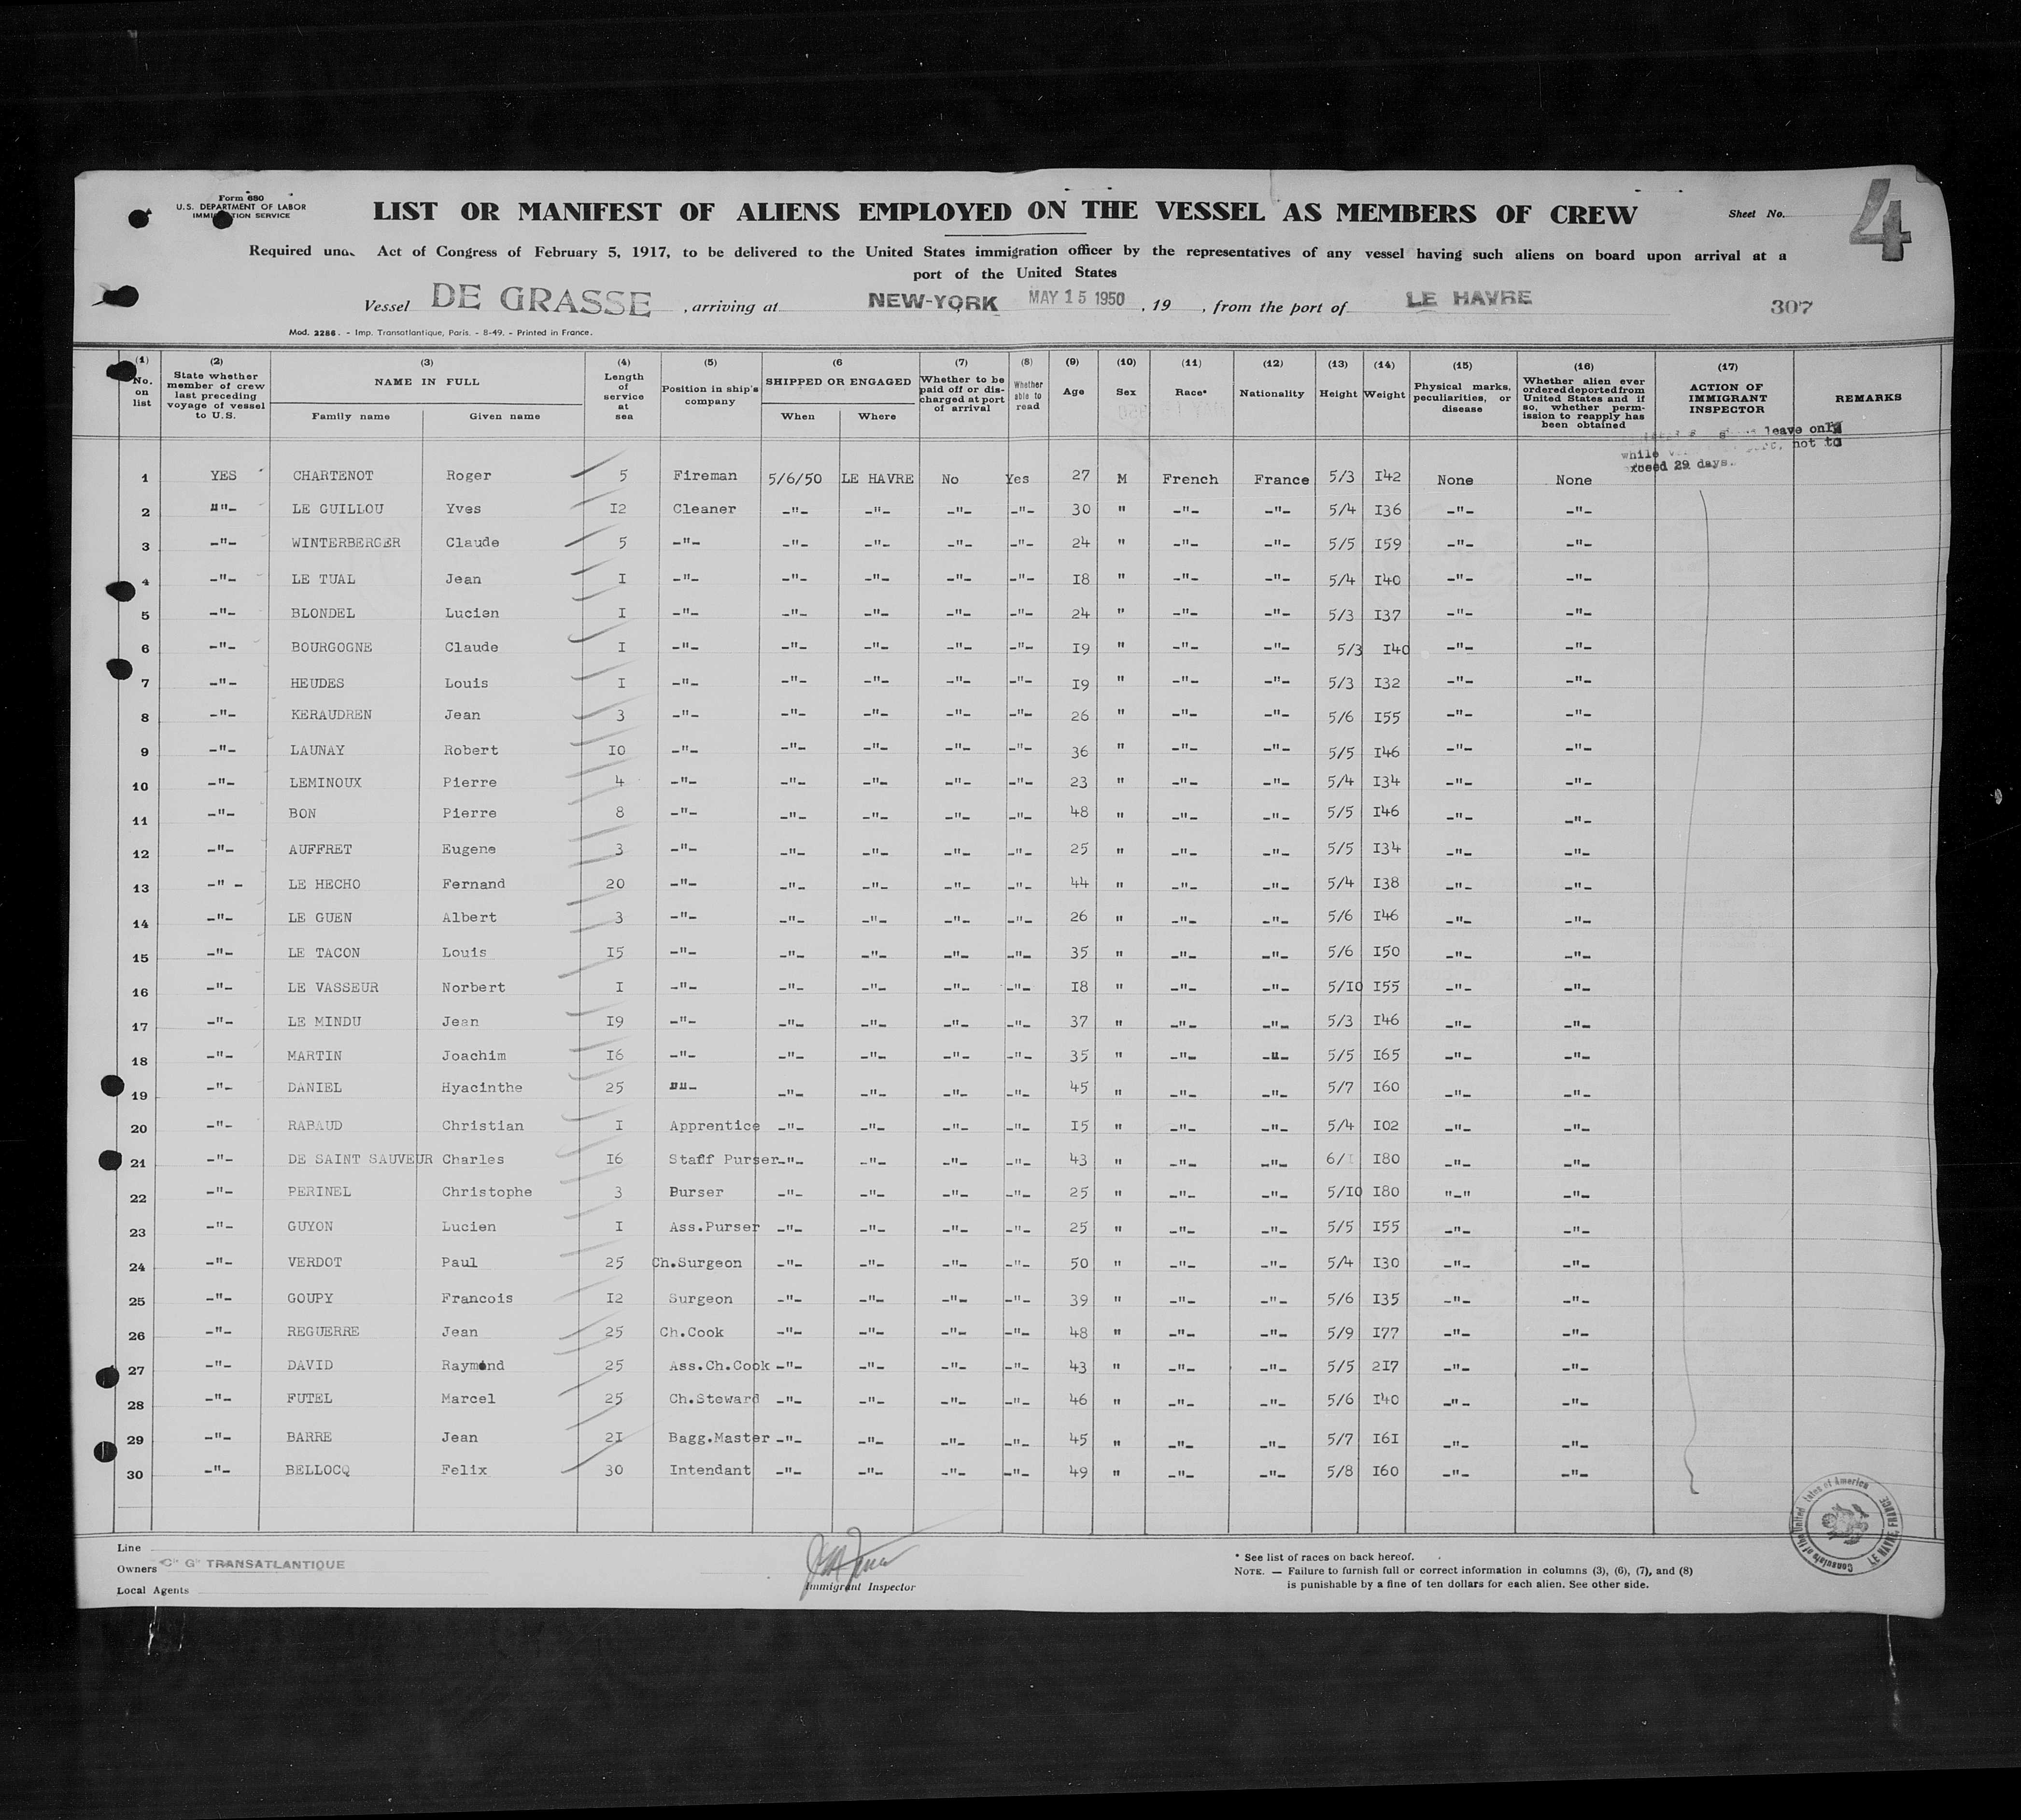 Form 680
U.S. DEPARTMENT OF LABOR
IMMIGRATION SERVICE
LIST OR MANIFEST OF ALIENS EMPLOYED ON THE VESSEL AS MEMBERS OF CREW
Sheet No. 4
Required Act of Congress of February 5, 1917, to be delivered to the United States immigration officer by the representatives of any vessel having such aliens on board upon arrival at a
port of the United States
Vessel DE GRASSE, arriving at NEW-YORK MAY 15 1950, 19 , from the port of LE HAVRE
307
Mod. 2286. - Imp. Transatlantique, Paris. - 8-49. - Printed in France.
(1) No. on list (2) State whether member of crew last preceding voyage of vessel to U.S. (3) NAME IN FULL Family name Given name (4) Length of service at sea (5) Position in ship's company (6 SHIPPED OR ENGAGED When Where (7) Whether to be paid off or discharged at port of arrival (8) Whether able to read (9) Age (10) Sex (11) Race* (12) Nationality (13) Height (14) Weight (15) Physical marks, peculiarities, or disease (16) Whether alien ever ordered deported from United States and if so, whether permission to reapply has been obtained (17) ACTION OF IMMIGRANT INSPECTOR REMARKS
leave only
while not to
exceed 29 days.
1 YES CHARTENOT Roger 5 Fireman 5/6/50 LE HAVRE No Yes 27 M French France 5/3 I42 None None
2 ""- LE GUILLOU Yves I2 Cleaner -"- -"- -"- -"- 30 " -"- -"- 5/4 I36 -"- -"-
3 -"- WINTERBERGER Claude 5 -"- -"- -"- -"- -"- 24 " -"- -"- 5/5 I59 -"- -"-
4 -"- LE TUAL Jean I -"- -"- -"- -"- -"- I8 " -"- -"- 5/4 I40 -"- -"-
5 -"- BLONDEL Lucien I -"- -"- -"- -"- -"- 24 " -"- -"- 5/3 I37 -"- -"-
6 -"- BOURGOGNE Claude I -"- -"- -"- -"- -"- I9 " -"- -"- 5/3 I40 -"- -"-
7 -"- HEUDES Louis I -"- -"- -"- -"- -"- I9 " -"- -"- 5/3 I32 -"- -"-
8 -"- KERAUDREN Jean 3 -"- -"- -"- -"- -"- 26 " -"- -"- 5/6 I55 -"- -"-
9 -"- LAUNAY Robert I0 -"- -"- -"- -"- -"- 36 " -"- -"- 5/5 I46 -"- -"-
10 -"- LEMINOUX Pierre 4 -"- -"- -"- -"- -"- 23 " -"- -"- 5/4 I34 -"- -"-
11 -"- BON Pierre 8 -"- -"- -"- -"- -"- 48 " -"- -"- 5/5 I46 -"- -"-
12 -"- AUFFRET Eugene 3 -"- -"- -"- -"- -"- 25 " -"- -"- 5/5 I34 -"- -"-
13 -" - LE HECHO Fernand 20 -"- -"- -"- -"- -"- 44 " -"- -"- 5/4 I38 -"- -"-
14 -"- LE GUEN Albert 3 -"- -"- -"- -"- -"- 26 " -"- -"- 5/6 I46 -"- -"-
15 -"- LE TACON Louis I5 -"- -"- -"- -"- -"- 35 " -"- -"- 5/6 I50 -"- -"-
16 -"- LE VASSEUR Norbert I -"- -"- -"- -"- -"- I8 " -"- -"- 5/I0 I55 -"- -"-
17 -"- LE MINDU Jean I9 -"- -"- -"- -"- -"- 37 " -"- -"- 5/3 I46 -"- -"-
18 -"- MARTIN Joachim I6 -"- -"- -"- -"- -"- 35 " -"- -"- 5/5 I65 -"- -"-
19 -"- DANIEL Hyacinthe 25 ""- -"- -"- -"- -"- 45 " -"- -"- 5/7 I60 -"- -"-
20 -"- RABAUD Christian I Apprentice -"- -"- -"- -"- I5 " -"- -"- 5/4 I02 -"- -"-
21 -"- DE SAINT SAUVEUR Charles I6 Staff Purser -"- -"- -"- -"- 43 " -"- -"- 6/I I80 -"- -"-
22 -"- PERINEL Christophe 3 Purser -"- -"- -"- -"- 25 " -"- -"- 5/I0 I80 "-" -"-
23 -"- GUYON Lucien I Ass.Purser -"- -"- -"- -"- 25 " -"- -"- 5/5 I55 -"- -"-
24 -"- VERDOT Paul 25 Ch.Surgeon -"- -"- -"- -"- 50 " -"- -"- 5/4 I30 -"- -"-
25 -"- GOUPY Francois I2 Surgeon -"- -"- -"- -"- 39 " -"- -"- 5/6 I35 -"- -"-
26 -"- REGUERRE Jean 25 Ch.Cook -"- -"- -"- -"- 48 " -"- -"- 5/9 I77 -"- -"-
27 -"- DAVID Raymond 25 Ass.Ch.Cook -"- -"- -"- -"- 43 " -"- -"- 5/5 2I7 -"- -"-
28 -"- FUTEL Marcel 25 Ch.Steward -"- -"- -"- -"- 46 " -"- -"- 5/6 I40 -"- -"-
29 -"- BARRE Jean 2I Bagg.Master -"- -"- -"- -"- 45 " -"- -"- 5/7 I6I -"- -"-
30 -"- BELLOCQ Felix 30 Intendant -"- -"- -"- -"- 49 " -"- -"- 5/8 I60 -"- -"-
Line
Owners Cie Gle TRANSATLANTIQUE
Local Agents
Immigrant Inspector
* See list of races on back hereof.
NOTE. — Failure to furnish full or correct information in columns (3), (6), (7), and (8)
is punishable by a fine of ten dollars for each alien. See other side.
Consulate of the United States of America
LE HAVRE, FRANCE